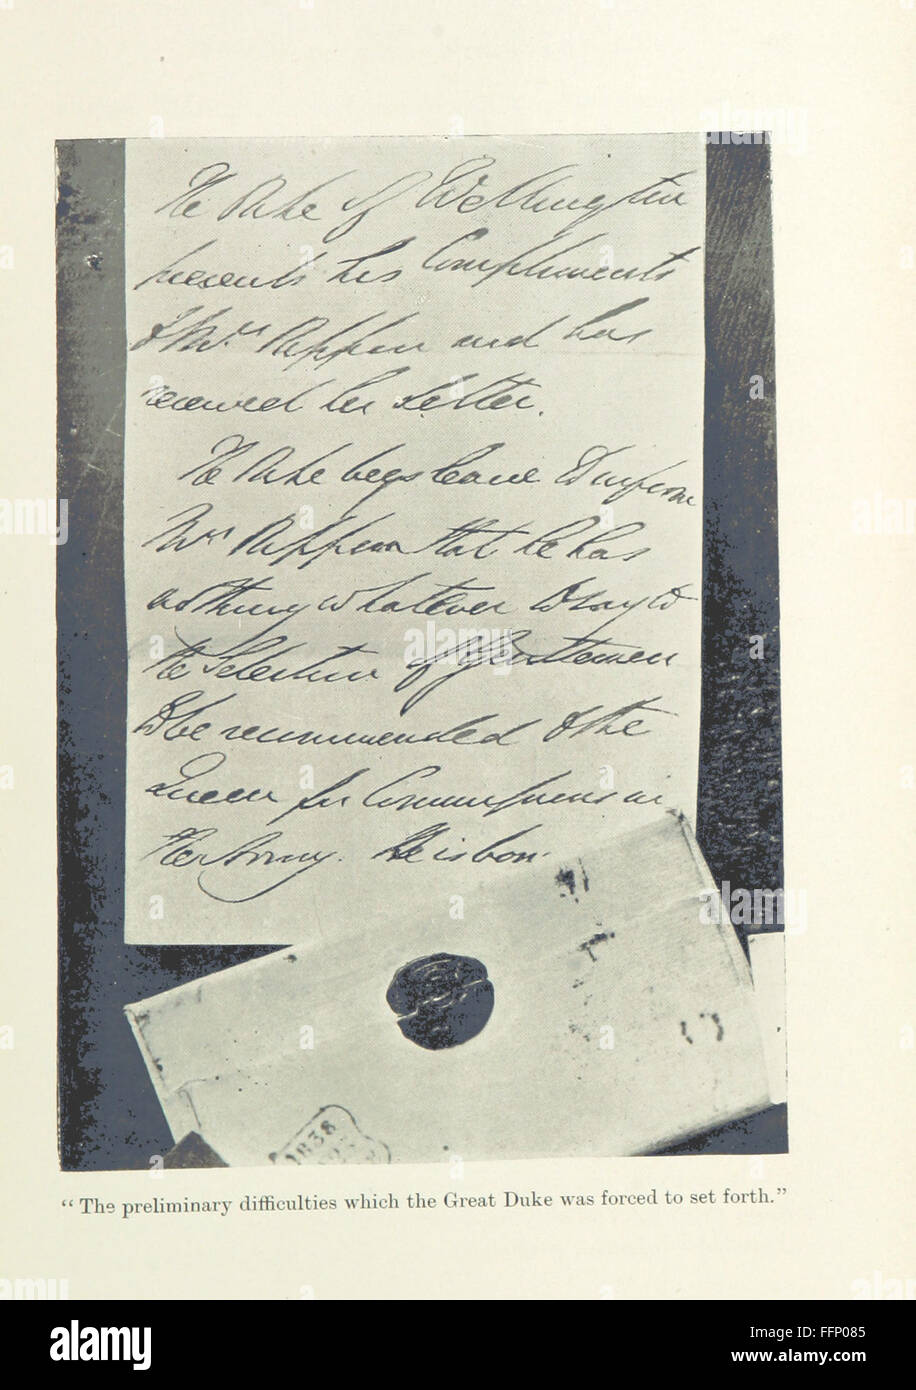 The Duke of Wellington
presents his Compliments
to Mrs. and has
received her Letter.
The Duke begs leave to inform
Mrs. that he has
nothing whatever to say to
the Selection of Gentlemen
to be recommended to the
Queen for Commissions in
Her Army. He is
1838
“The preliminary difficulties which the Great Duke was forced to set forth.”
alamy
Image ID: FFP085
www.alamy.com